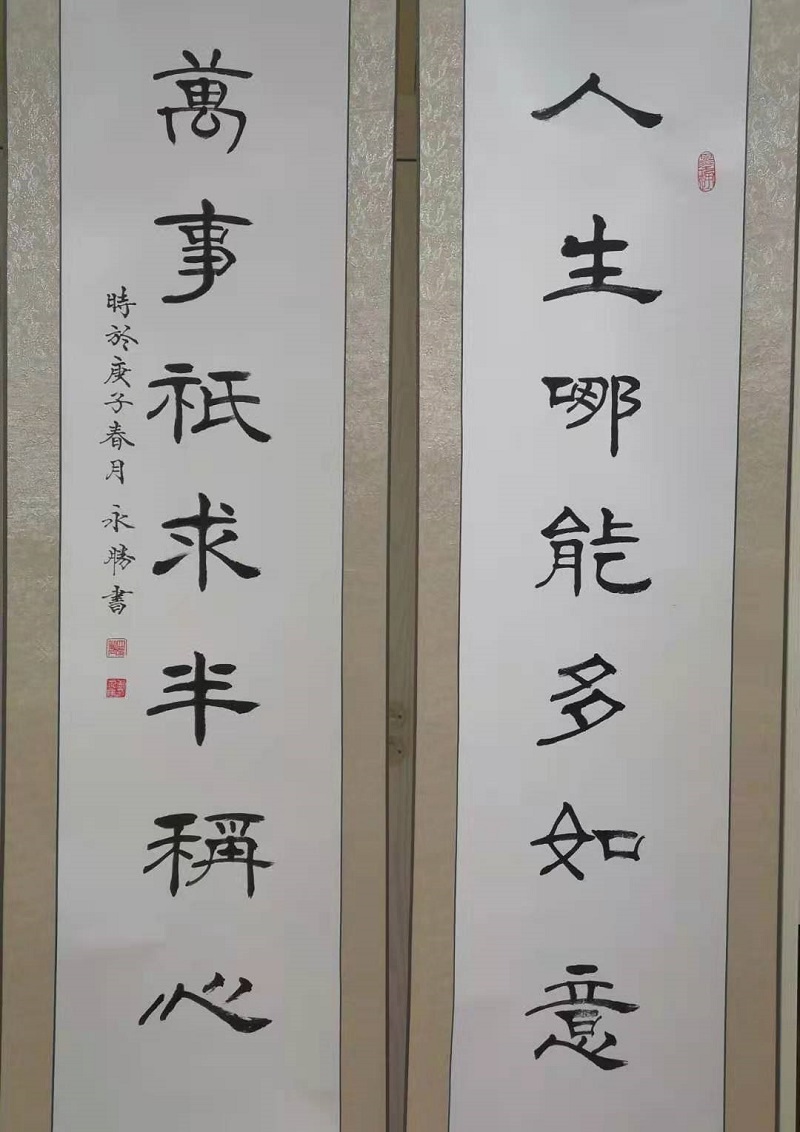 人生哪能多如意
萬事祇求半稱心
時於庚子春月 永勝書